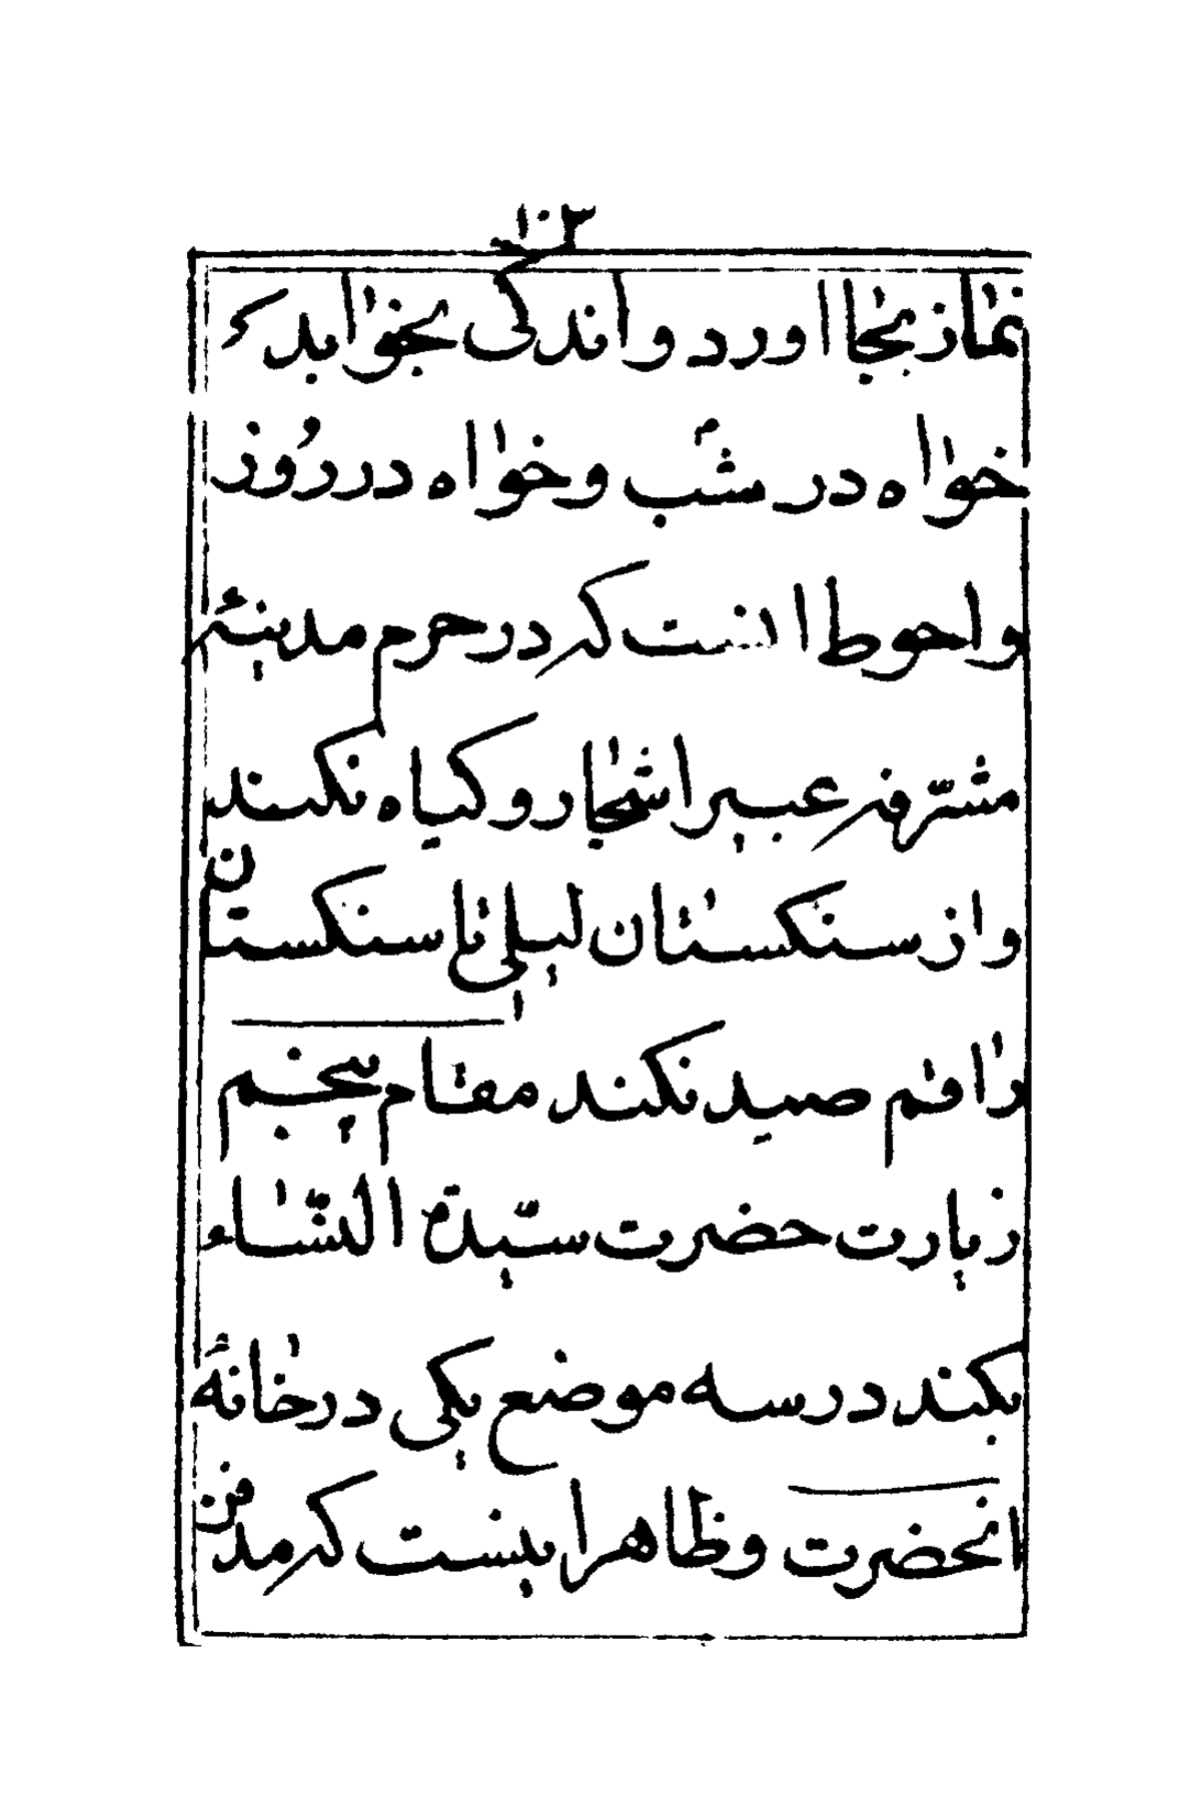 ۱۰۳
نماز بجا اورد و اندکی بخوابد
خواه در شب و خواه در روز
و احوط اینست که در حرم مدینهٔ
مشرّفه عبیر اشجار و کیاه نکنند
و از سنکستان لیلی تا سنکستان
راقم صید نکند مقام پنجم
زیارت حضرت سیّدة النّساء
بکند در سه موضع یکی در خانهٔ
انحضرت و ظاهر اینست که مدفن